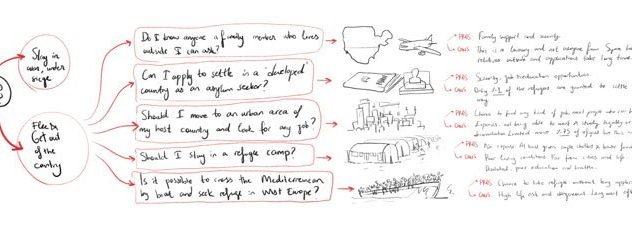 Stay in
war, under
siege
Flee by
Get out
of the
country
Do I know anyone a family member who lives
outside I can ask?
Can I apply to settle in a 'developed'
country as an asylum seeker?
Should I move to an urban area of
my host country and look for any job?
Should I stay in a refuge camp?
Is it possible to cross the Mediterranean
by boat and seek refuge in West Europe?
PROS Family support and security
CONS This is a luxury and not everyone from Syria has
relatives outside and applications take long time
PROS Security, job & education opportunities
CONS Only of the refugees are granted to settle
way
PROS Chance to find any kind of job, meet people who can
CONS Expenses, not being able to work & study legally or
discrimination
PROS No expense. At least given simple shelter & basic
CONS Poor living conditions. Far from cities and life.
Isolated, poor education and
PROS Chance to take refuge without long
CONS High life risk and